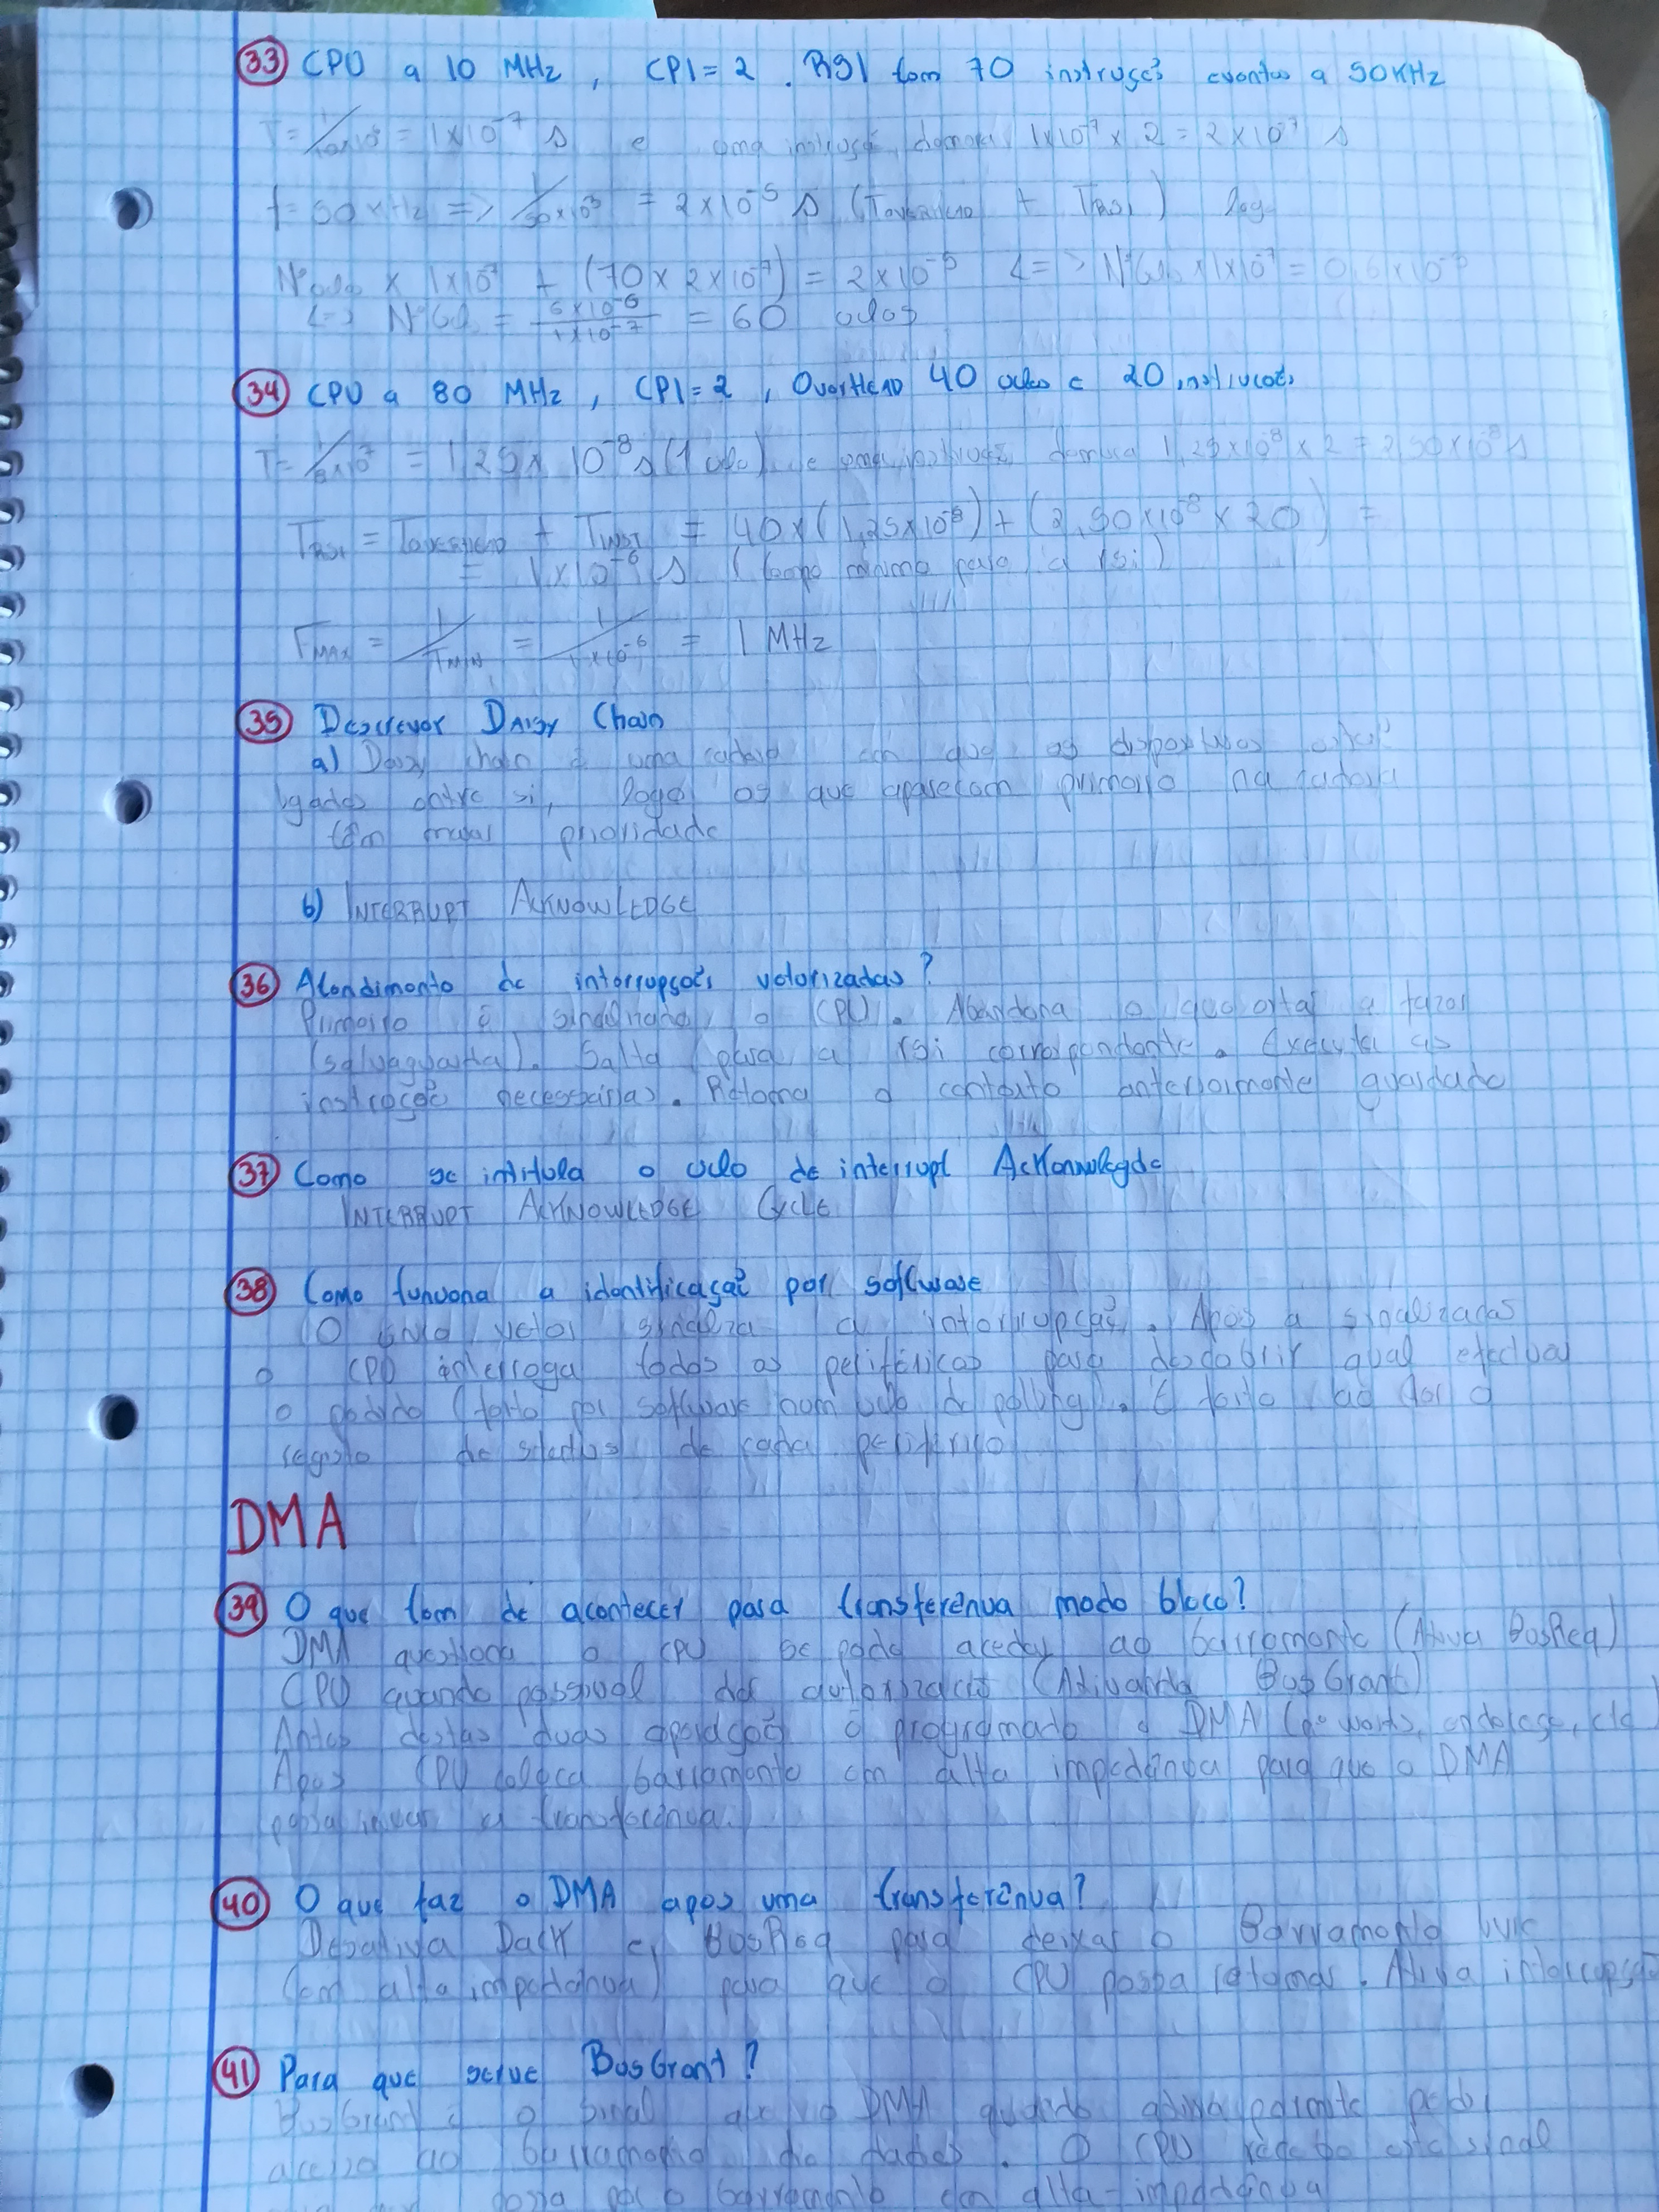 33 CPU a 10 MHz, CPI = 2. RSI com 70 instruções eventos a 50KHz
T = 1/10x10⁶ = 1x10⁻⁷ s e uma instrução demora 1x10⁻⁷ x 2 = 2x10⁻⁷ s
f = 50 KHz => 1/50x10³ = 2x10⁻⁵ s (Toverhead + TRSI) logo
NºCiclos x 1x10⁻⁷ + (70 x 2x10⁻⁷) = 2x10⁻⁵ <=> NºCiclos x 1x10⁻⁷ = 0,6x10⁻⁵
<=> NºCiclos = 6x10⁻⁶/1x10⁻⁷ = 60 ciclos
34 CPU a 80 MHz, CPI = 2, OverHEAD 40 ciclos e 20 instruções
T = 1/8x10⁷ = 1,25x10⁻⁸ s (1 ciclo) e uma instrução demora 1,25x10⁻⁸ x 2 = 2,50x10⁻⁸ s
TRSI = ToverHEAD + TINST = 40x(1,25x10⁻⁸) + (2,50x10⁻⁸ x 20) =
= 1x10⁻⁶ s (tempo minimo para a rsi)
FMAX = 1/TMIN = 1/1x10⁻⁶ = 1 MHz
35 Descrever Daisy Chain
a) Daisy chain é uma cadeia em que os dispositivos estão
ligados entre si, logo os que aparecem primeiro na cadeia
têm maior prioridade
b) INTERRUPT ACKNOWLEDGE
36 Atendimento de interrupções vetorizadas?
Primeiro é sinalizado o CPU. Abandona o que está a fazer
(salvaguarda). Salta para a rsi correspondente. Executa as
instruções necessárias. Retoma o contexto anteriormente guardado
37 Como se intitula o ciclo de interrupt Acknowlegde
INTERRUPT ACKNOWLEDGE CYCLE
38 Como funciona a identificação por software
O único vetor sinaliza a interrupção. Após a sinalizadas
o CPU interroga todos os periféricos para descobrir qual efectuou
o pedido (feito por software num ciclo de polling). É feito ao ler o
registo de status de cada periférico
DMA
39 O que tem de acontecer para transferência modo bloco?
DMA questiona o CPU se pode aceder ao barramento (Ativa BusReq)
CPU quando possivel dá autorização (Ativando BusGrant)
Antes destas duas operações é programado o DMA (nº words, endereço, etc
Apos CPU coloca barramento em alta impedância para que o DMA
possa iniciar a transferência.
40 O que faz o DMA apos uma transferência?
Desativa Dack e BusReq para deixar o Barramento livre
(em alta impedância) para que o CPU possa retomar. Ativa interrupção
41 Para que serve BusGrant?
BusGrant é o sinal que o DMA quando ativa permite pedir
acesso ao barramento de dados. O CPU recebe este sinal
dessa por o barramento em alta-impedância